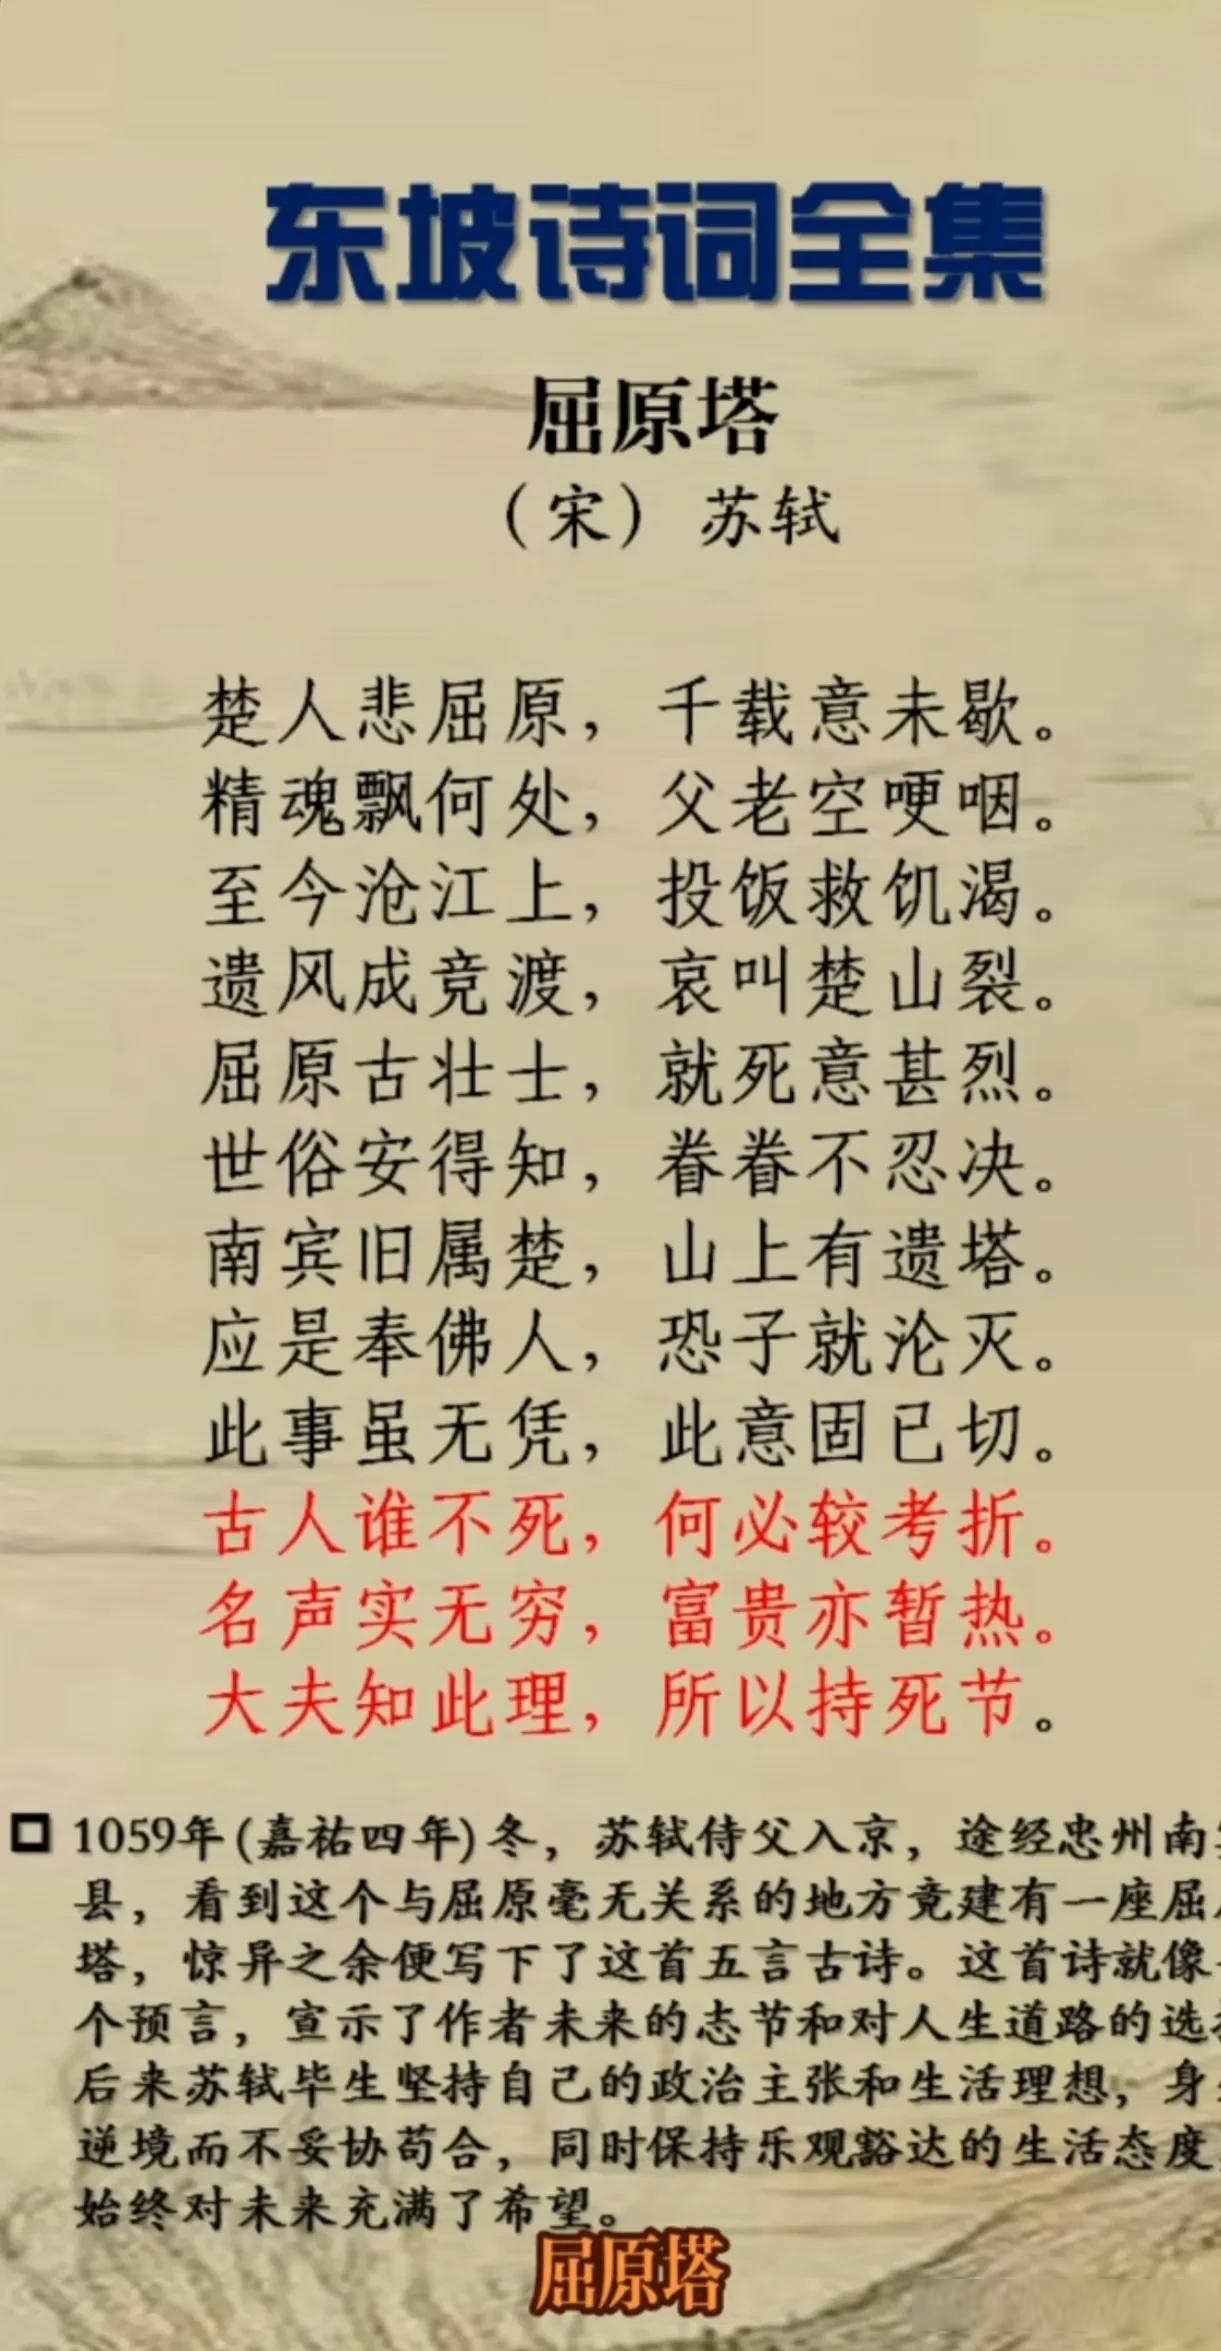 东坡诗词全集
屈原塔
（宋） 苏轼
楚人悲屈原，千载意未歇。
精魂飘何处，父老空哽咽。
至今沧江上，投饭救饥渴。
遗风成竞渡，哀叫楚山裂。
屈原古壮士，就死意甚烈。
世俗安得知，眷眷不忍决。
南宾旧属楚，山上有遗塔。
应是奉佛人，恐子就沦灭。
此事虽无凭，此意固已切。
古人谁不死，何必较考折。
名声实无穷，富贵亦暂热。
大夫知此理，所以持死节。
1059年(嘉祐四年)冬，苏轼侍父入京，途经忠州南
县，看到这个与屈原毫无关系的地方竟建有一座屈
塔，惊异之余便写下了这首五言古诗。这首诗就像
个预言，宣示了作者未来的志节和对人生道路的选
后来苏轼毕生坚持自己的政治主张和生活理想，身
逆境而不妥协苟合，同时保持乐观豁达的生活态度
始终对未来充满了希望。
屈原塔